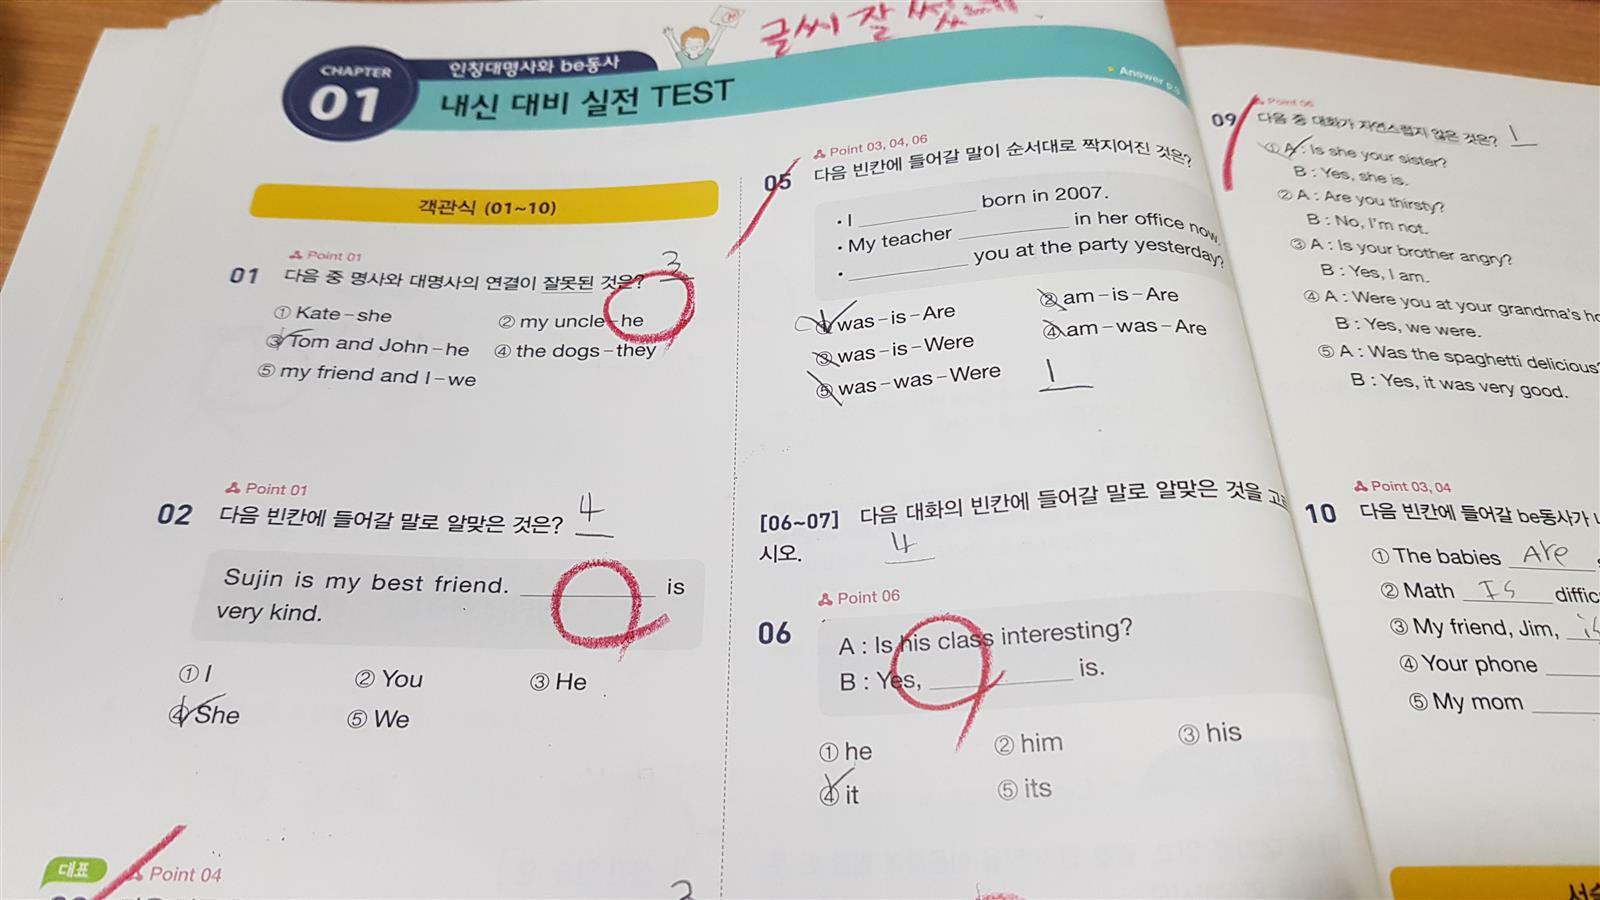 글씨 잘 썼네
CHAPTER
01
인칭대명사와 be동사
내신 대비 실전 TEST
Answer p.
객관식 (01~10)
Point 01
01 다음 중 명사와 대명사의 연결이 잘못된 것은? 3
① Kate – she ② my uncle – he
③ Tom and John – he ④ the dogs – they
⑤ my friend and I – we
Point 01
02 다음 빈칸에 들어갈 말로 알맞은 것은? 4
Sujin is my best friend. ________ is
very kind.
① I ② You ③ He
④ She ⑤ We
대표
Point 04
Point 03, 04, 06
05 다음 빈칸에 들어갈 말이 순서대로 짝지어진 것은?
• I ________ born in 2007.
• My teacher ________ in her office now.
• ________ you at the party yesterday?
① was – is – Are ② am – is – Are
③ was – is – Were ④ am – was – Are
⑤ was – was – Were 1
[06~07] 다음 대화의 빈칸에 들어갈 말로 알맞은 것을 고르
시오. 4
Point 06
06 A : Is his class interesting?
B : Yes, ________ is.
① he ② him ③ his
④ it ⑤ its
Point 06
09 다음 중 대화가 자연스럽지 않은 것은? 1
① A : Is she your sister?
B : Yes, she is.
② A : Are you thirsty?
B : No, I'm not.
③ A : Is your brother angry?
B : Yes, I am.
④ A : Were you at your grandma's
B : Yes, we were.
⑤ A : Was the spaghetti delicious?
B : Yes, it was very good.
Point 03, 04
10 다음 빈칸에 들어갈 be동사가
① The babies Are
② Math Is
③ My friend, Jim, is
④ Your phone ________
⑤ My mom ________